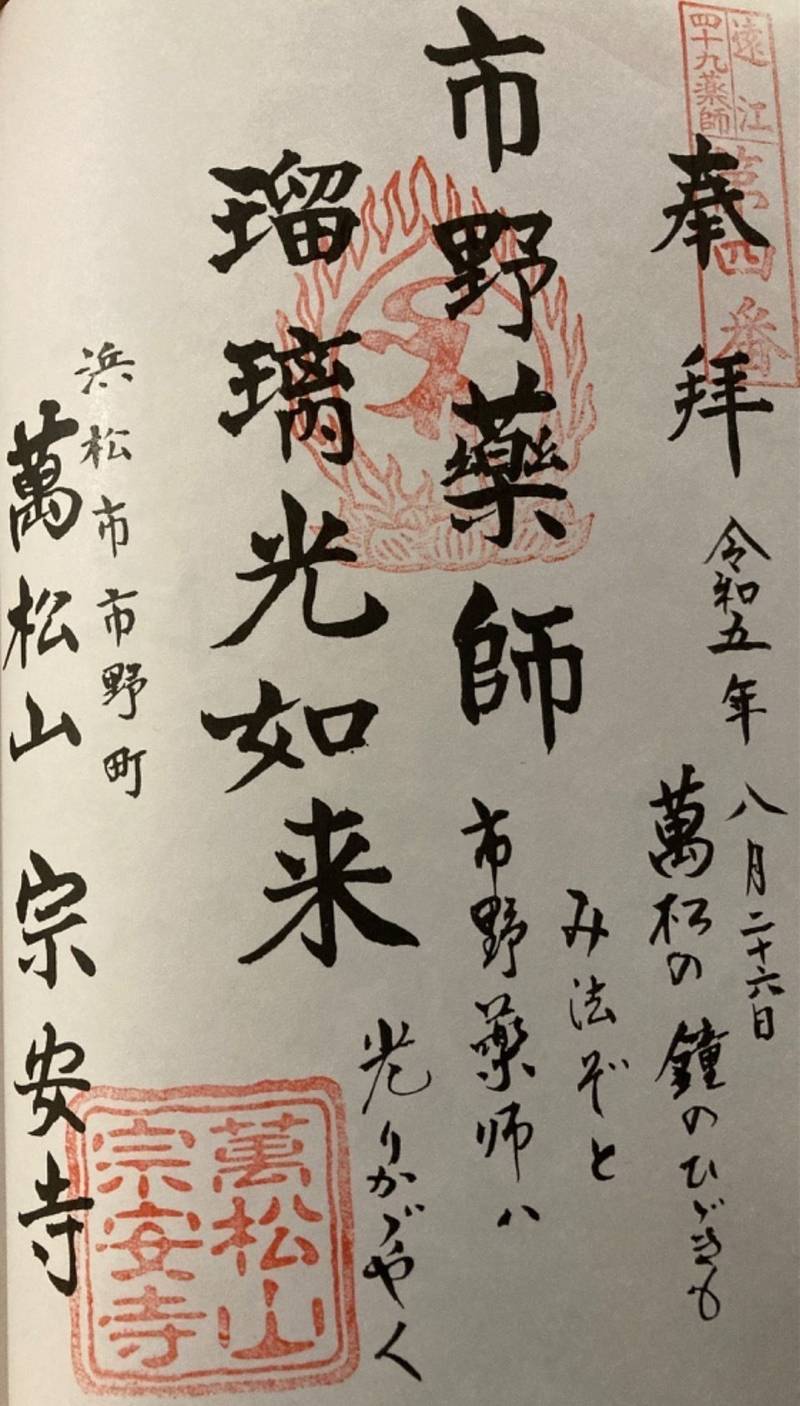 遠江
四十九薬師
第四番
奉拝
令和五年八月二十六日
萬松の鐘のひゞきも
み法ぞと
市野薬師ハ
光りかゞやく
市野藥師
瑠璃光如来
浜松市市野町
萬松山宗安寺
萬松山
宗安寺